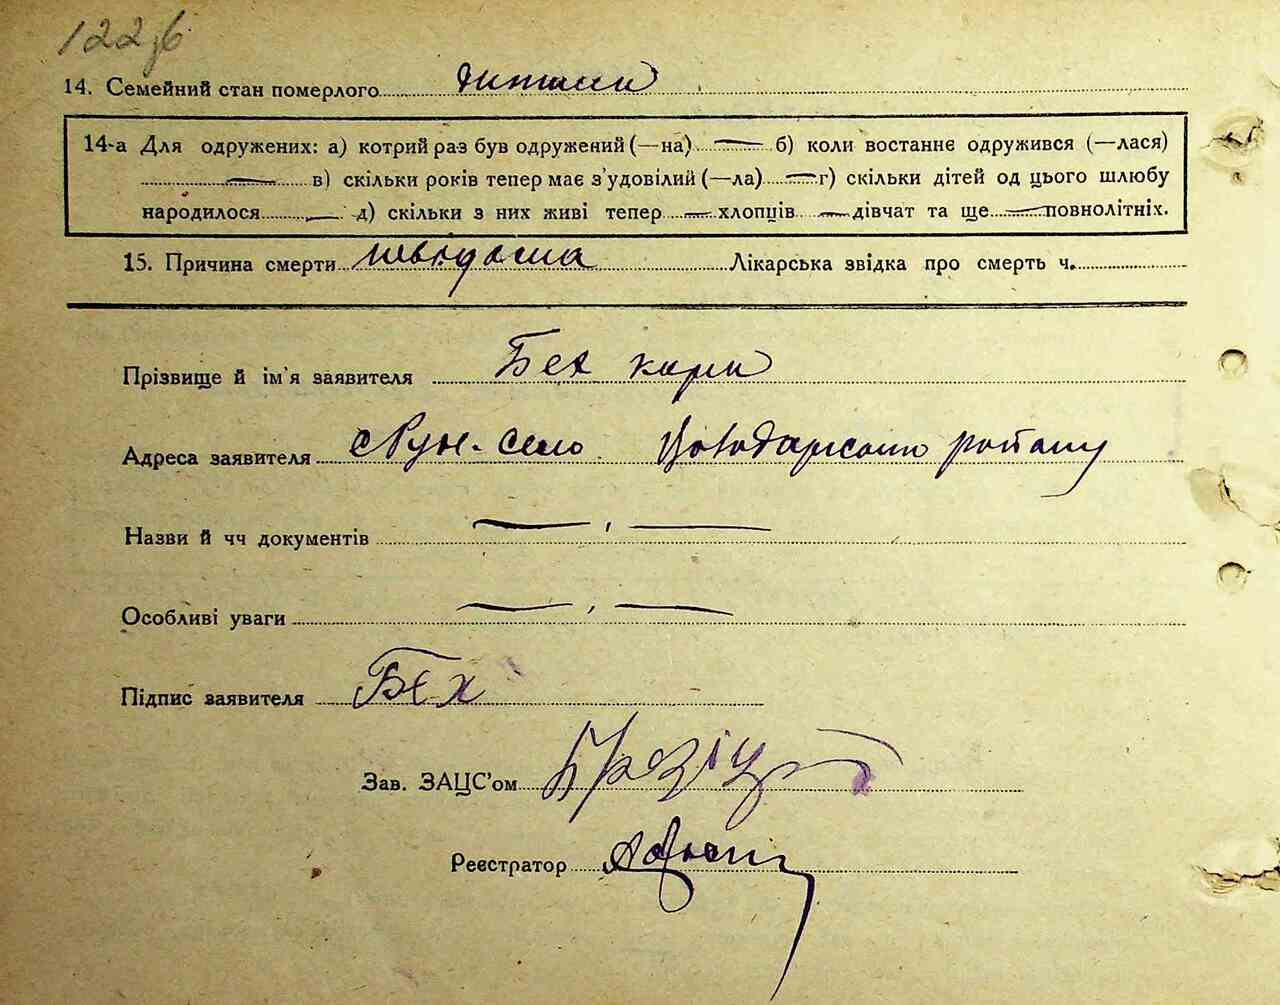 122,б
14. Семейний стан померлого
14-а Для одружених: а) котрий раз був одружений (—на) — б) коли востаннє одружився (—лася)
— в) скільки років тепер має з'удовілий (—ла) — г) скільки дітей од цього шлюбу
народилося — д) скільки з них живі тепер — хлопців — дівчат та ще — повнолітніх.
15. Причина смерти невідома Лікарська звідка про смерть ч.
Прізвище й ім'я заявителя Бех
Адреса заявителя село району
Назви й чч документів — , —
Особливі уваги — , —
Підпис заявителя Бех
Зав. ЗАЦС'ом
Реєстратор